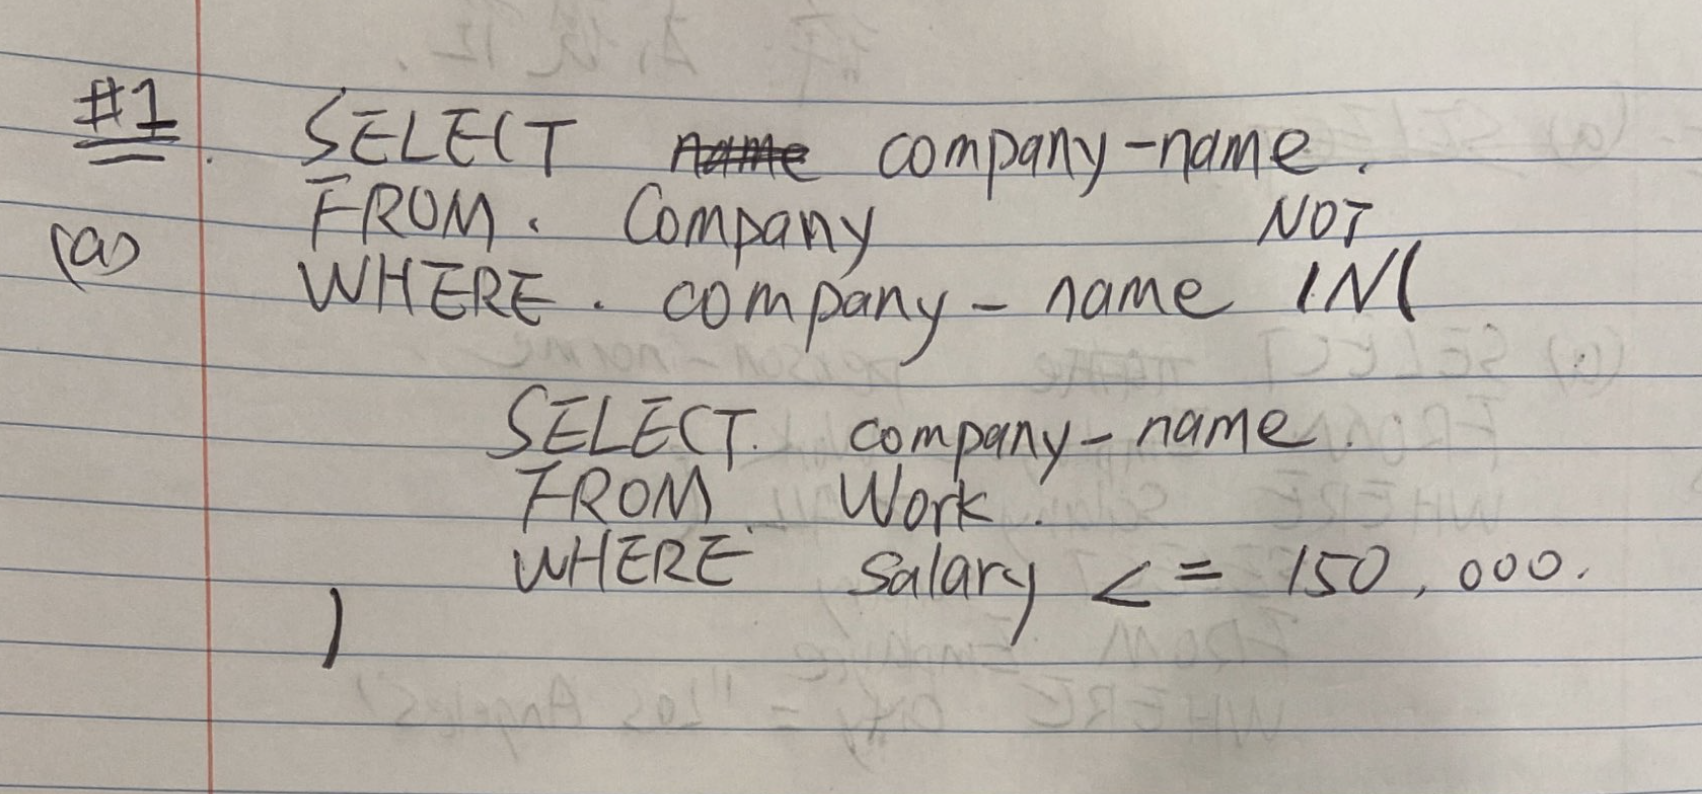 #1. SELECT name company-name.
FROM. Company NOT
(a) WHERE. company-name IN(
SELECT. company-name.
FROM. Work.
WHERE salary <= 150,000.
)